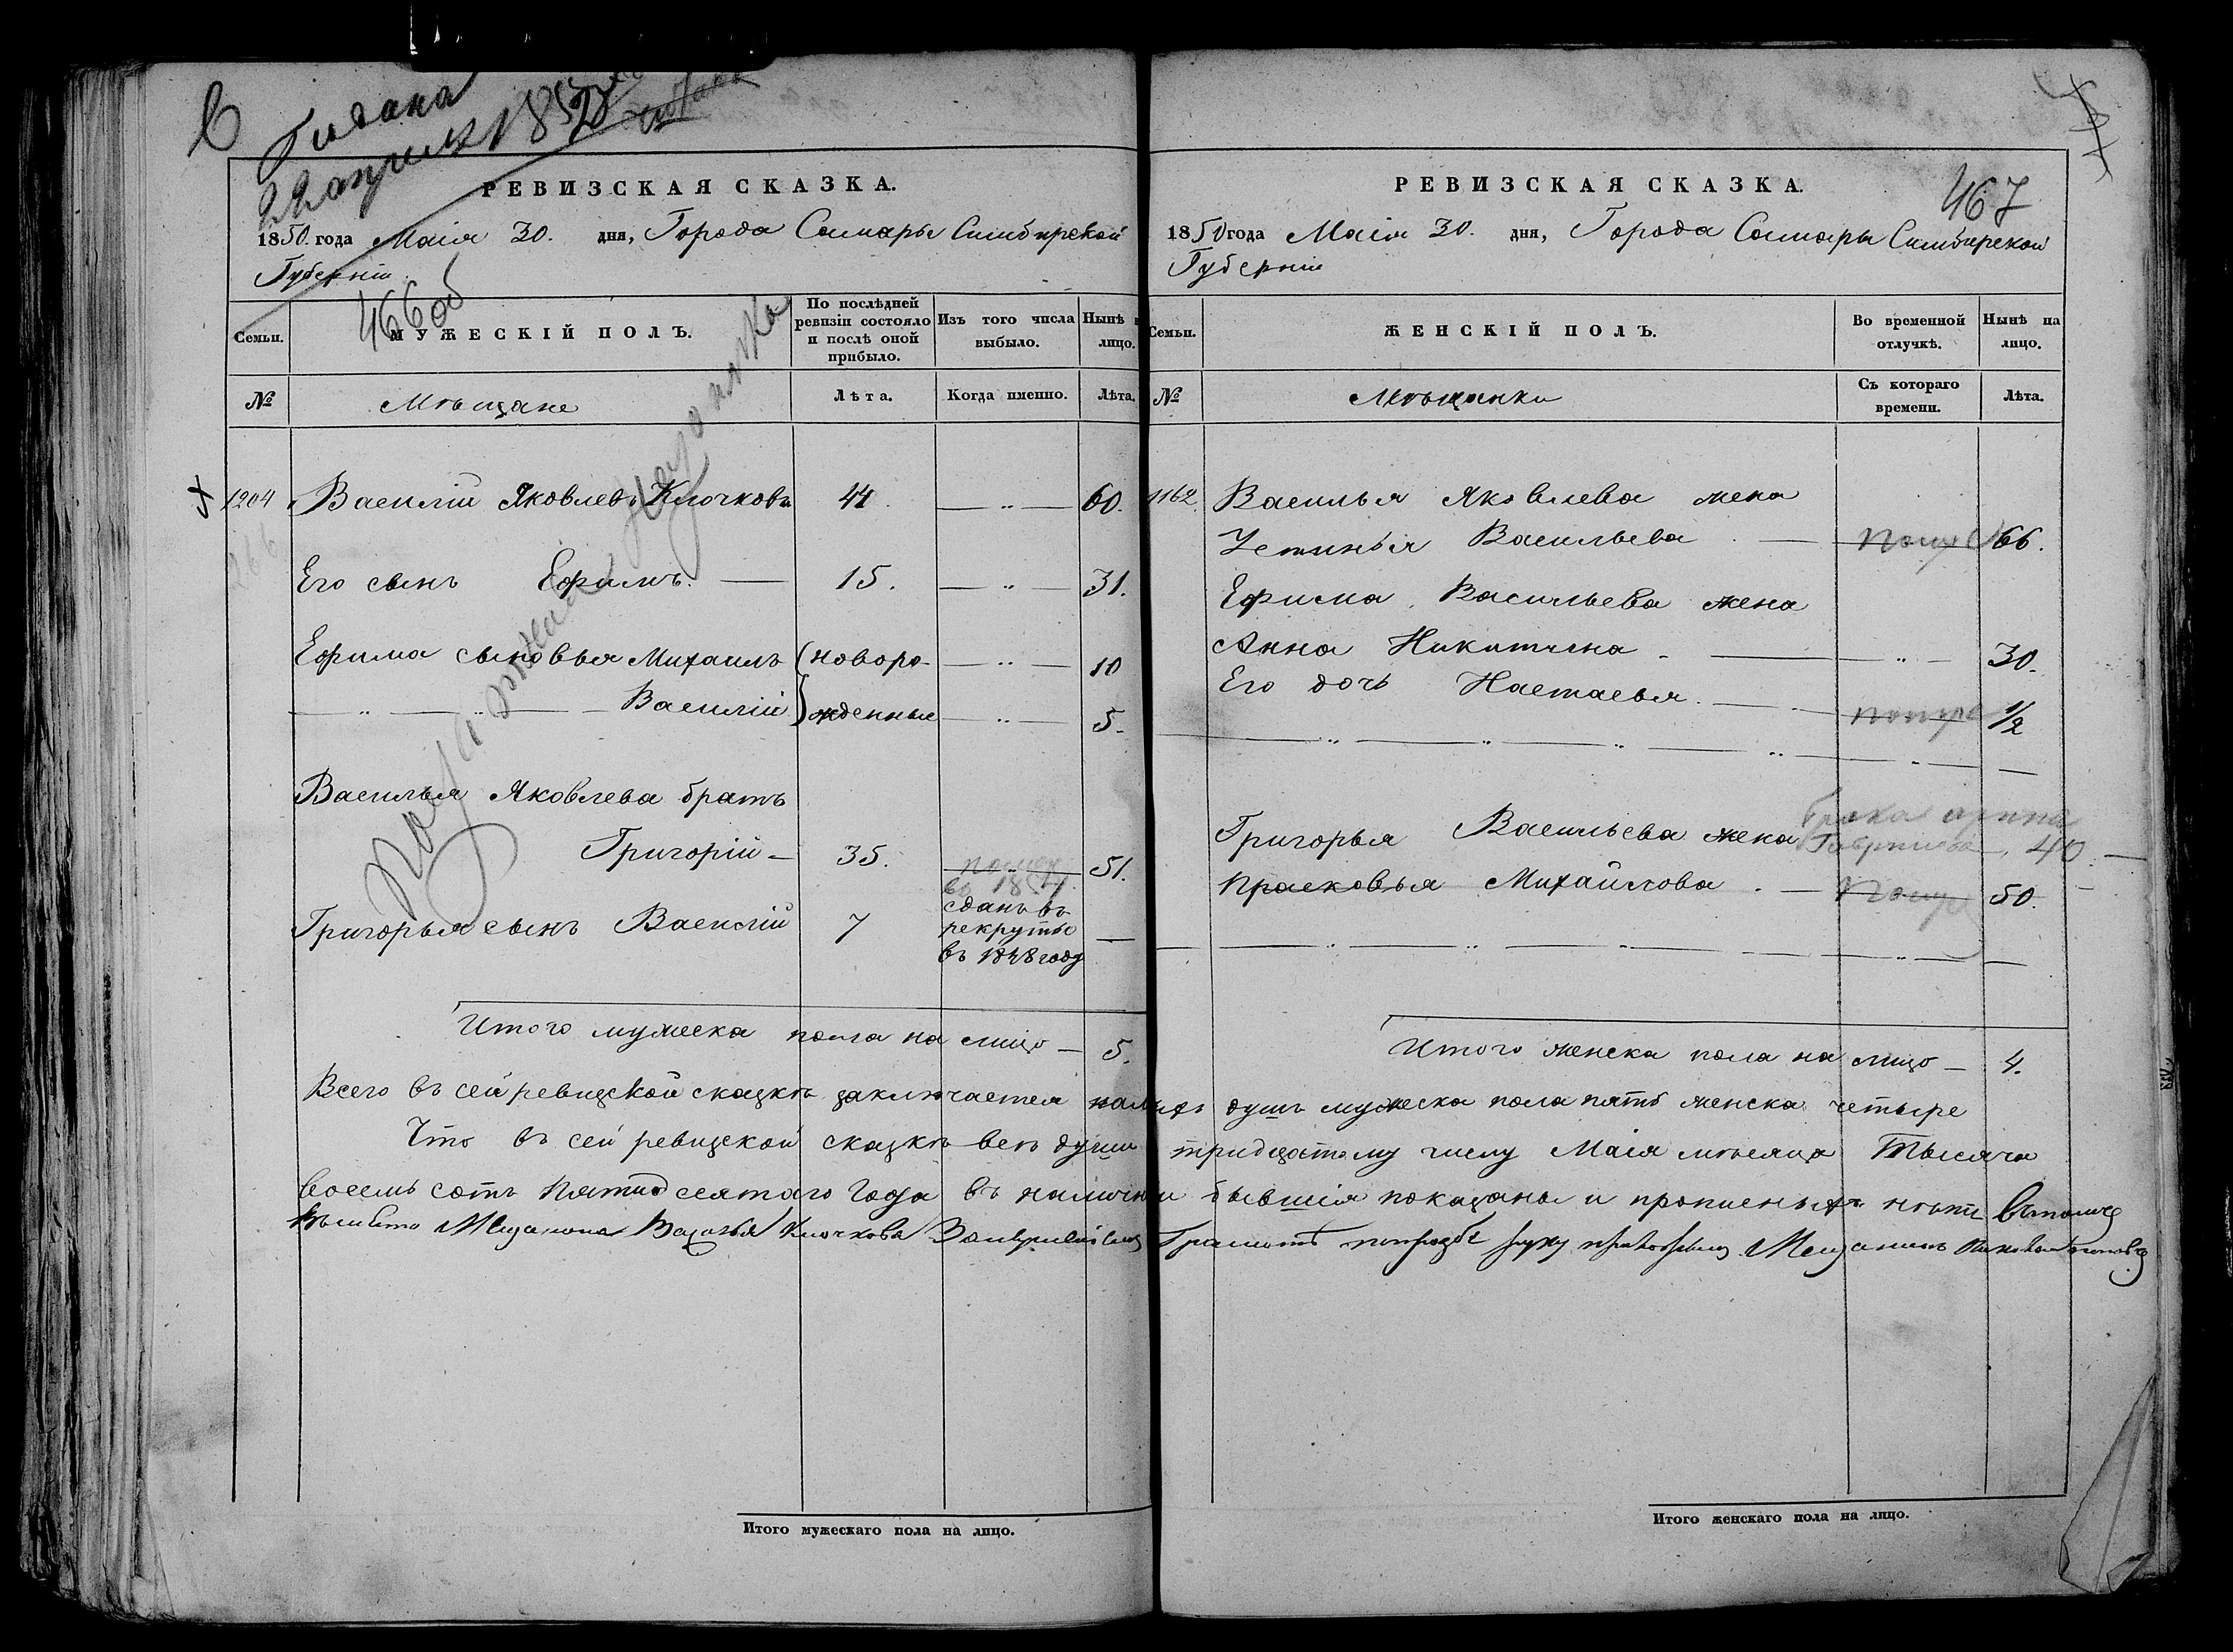 С
Подана
1850
РЕВИЗСКАЯ СКАЗКА.
1850. года Маія 30. дня, Города Самары Симбирской
Губерніи
466 об
Семьи.
МУЖЕСКІЙ ПОЛЪ.
По послѣдней ревизіи состояло и послѣ оной прибыло.
Изъ того числа выбыло.
Нынѣ на лицо.
№
Мѣщане
Лѣта.
Когда именно.
Лѣта.
1204 Василій Яковлевъ Клочковъ 44. — " — 60.
Его сынъ Ефимъ. — 15. — " — 31.
Ефима сыновья Михаилъ (новоро- — " — 10
— " — " — Василій) жденные — " — 5.
Василья Яковлева братъ
Григорій — 35. помер 51.
въ 1854
Григорья сынъ Василій 7 сданъ въ рекруты въ 1848 году —
Итого мужеска пола на лицо — 5.
РЕВИЗСКАЯ СКАЗКА.
467
1850 года Маія 30. дня, Города Самары Симбирской
Губерніи
Семьи.
ЖЕНСКІЙ ПОЛЪ.
Во временной отлучкѣ.
Нынѣ на лицо.
№
Мѣщанки
Съ котораго времени.
Лѣта.
1162. Василья Яковлева жена
Устинья Васильева — 66.
Ефима Васильева жена
Анна Никитина — " — 30.
Его дочь Настасья. — 1/2
Григорья Васильева жена Гаврилова, 40
Прасковья Михайлова. — 50.
Итого женска пола на лицо — 4.
Всего въ сей ревизской сказкѣ заключается налицо душъ мужеска пола пять женска четыре
Что въ сей ревизской сказкѣ всѣ души тридцатому числу Маія мѣсяца Тысяча
восемь сотъ пятидесятаго года въ наличіи бывшія показаны и прописныхъ нѣтъ
Мещанина Василья Клочкова Грамотѣ попрозбе руку приложилъ Мещанинъ
Итого мужескаго пола на лицо.
Итого женскаго пола на лицо.